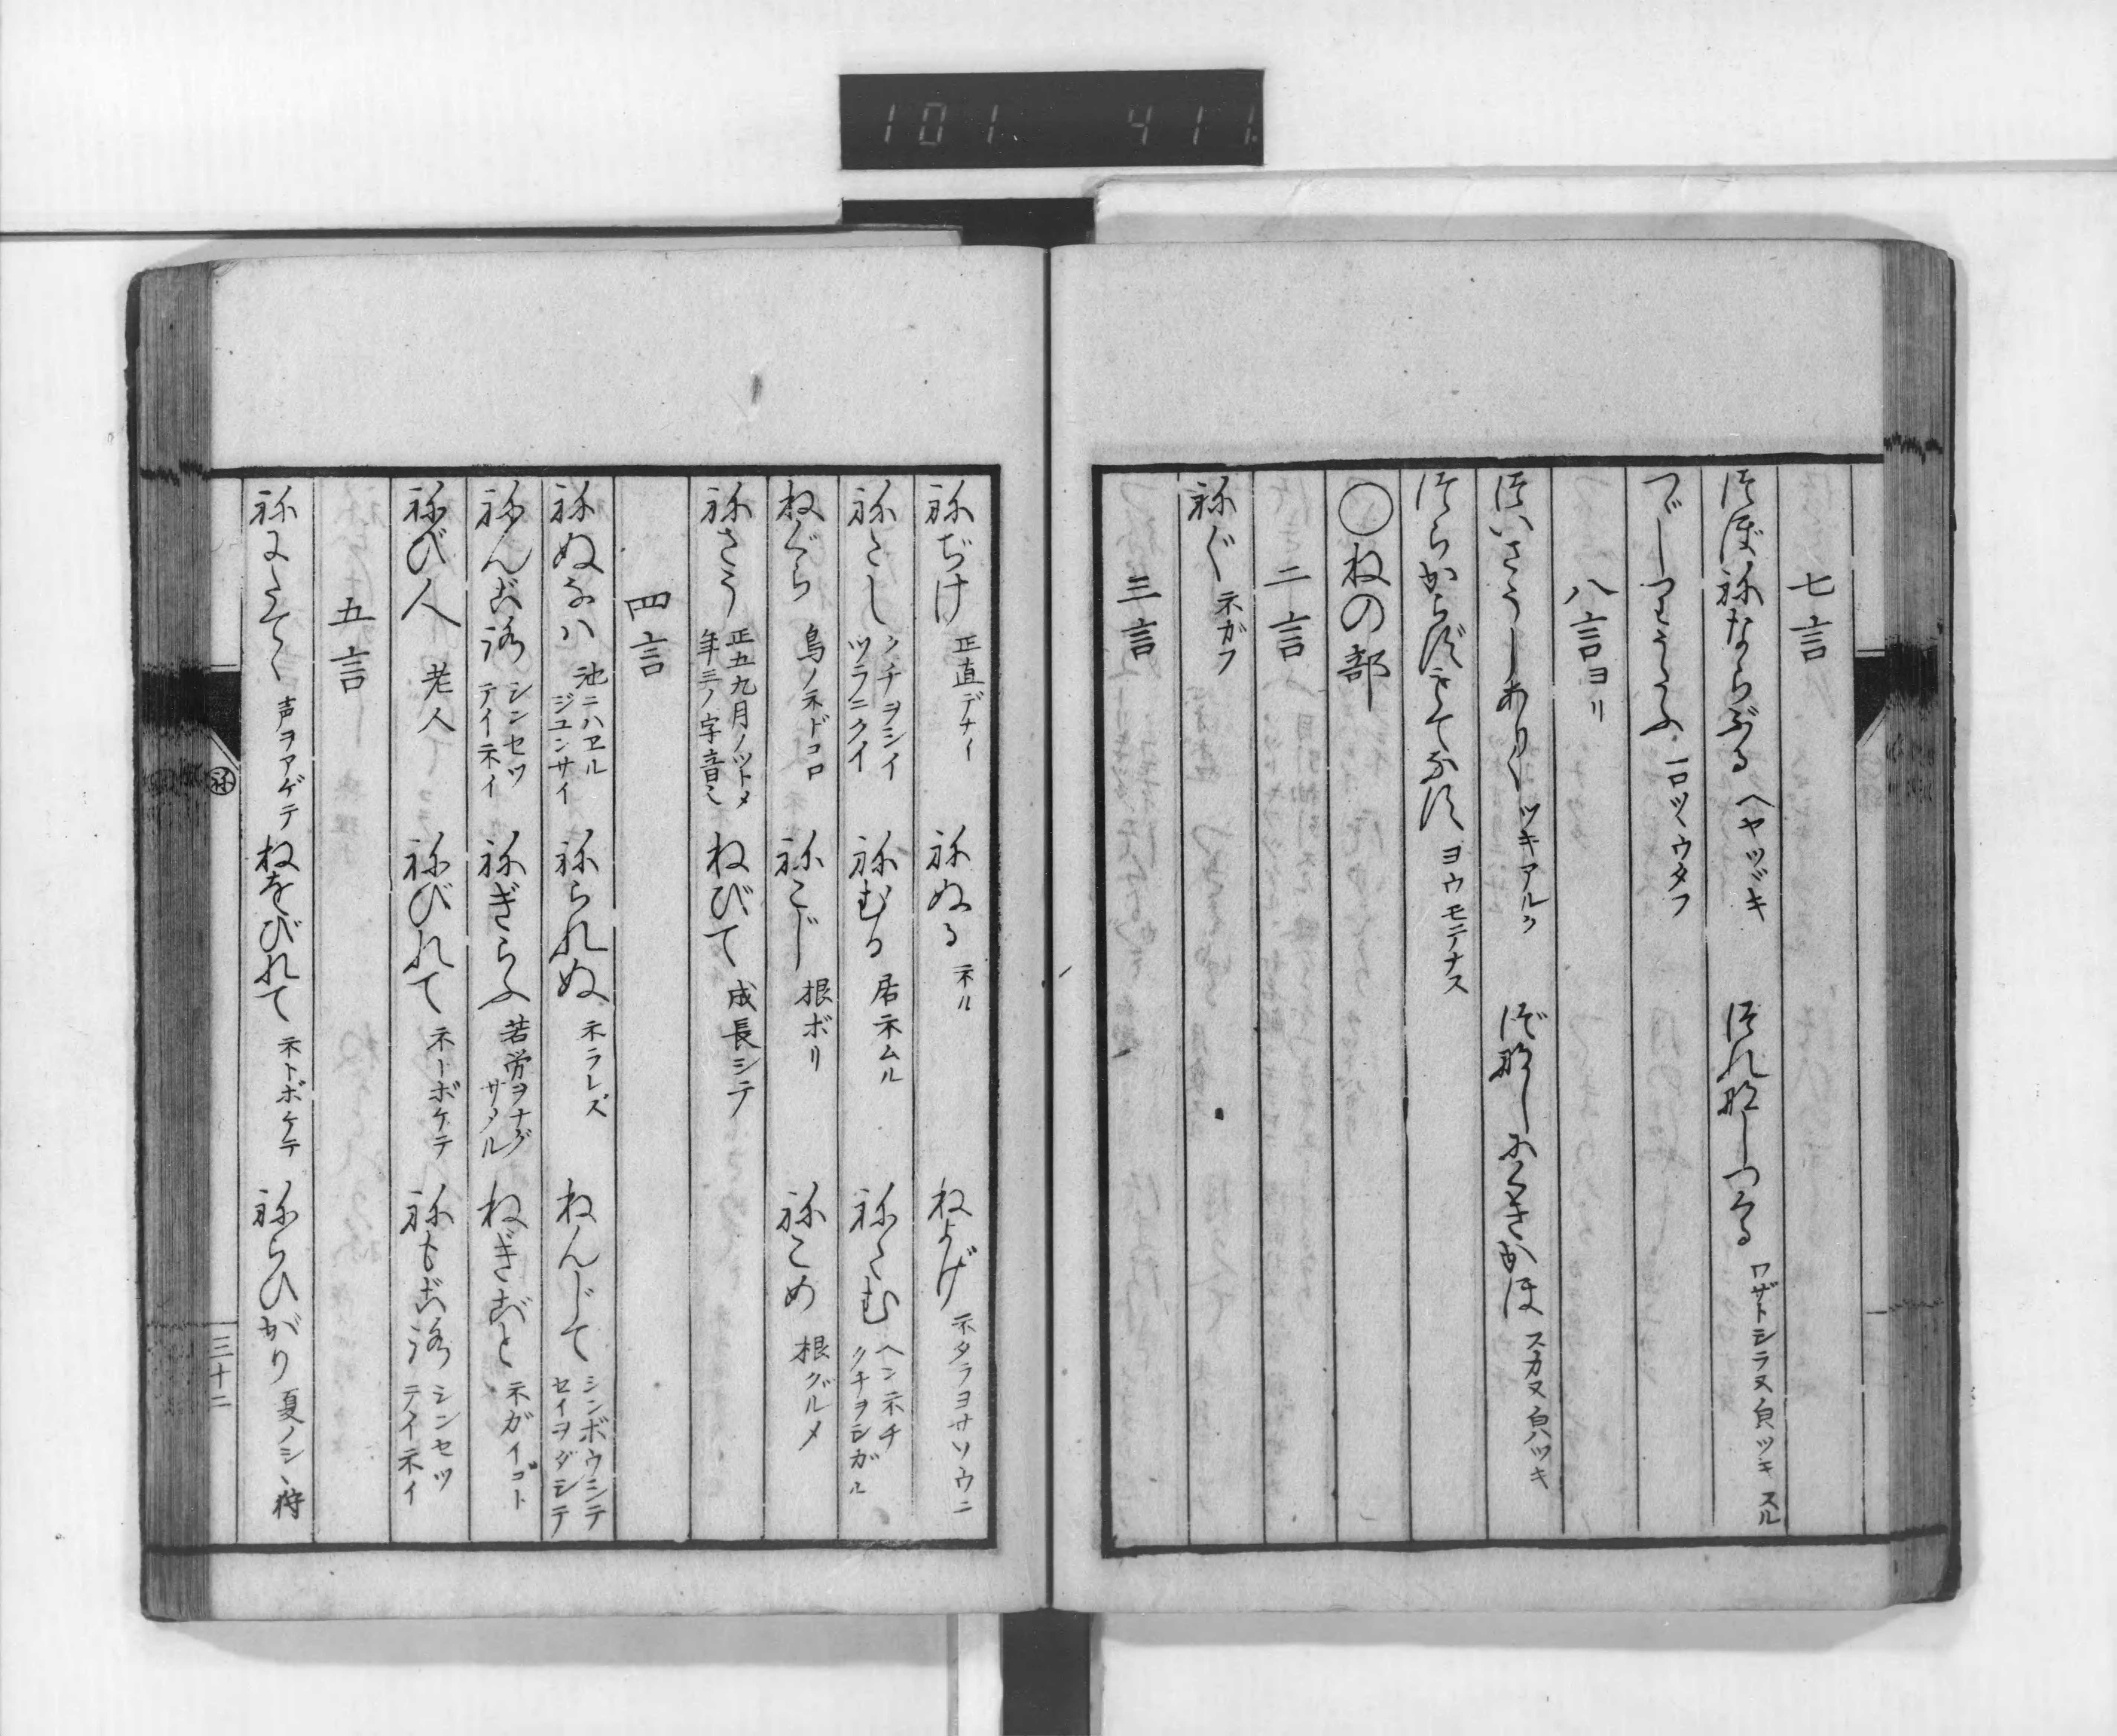 101 411
七言
つぼねならぶる ヘヤツヾキ
つれなしつくる ワザトシラヌ皃ツキスル
つゞしりうたふ 一口ツヽウタフ
八言ヨリ
ツキアルク
スカヌ皃ツキ
つらからずもてなす ヨウモテナス
○ねの部
二言
ねぐ ネガフ
三言
ねぢけ 正直デナイ
ねぬる ネル
ねよげ ネタラヨサソウニ
ねたし クチヲシイ ツラニクイ
ねむる 居ネムル
ねたむ ヘンネチ クチヲシガル
ねぐら 鳥ノネドコロ
ねこじ 根ボリ
ねこめ 根グルメ
ねさう 正五九月ノツトメ 年三ノ字音也
ねびて 成長シテ
四言
ねぬなは 池ニハヱル ジユンサイ
ねられぬ ネラレズ
ねんじて シンボウシテ セイヲダシテ
ねんごろ シンセツ テイネイ
ねぎらふ 苦労ヲナグサムル
ねぎごと ネガイゴト
ねび人 老人
ねびれて ネーボケテ
ねもごろ シンセツ テイネイ
五言
ねにたてゝ 声ヲアゲテ
ねをびれて ネトボケテ
ねらひがり 夏ノシヽ狩
ね
三十二